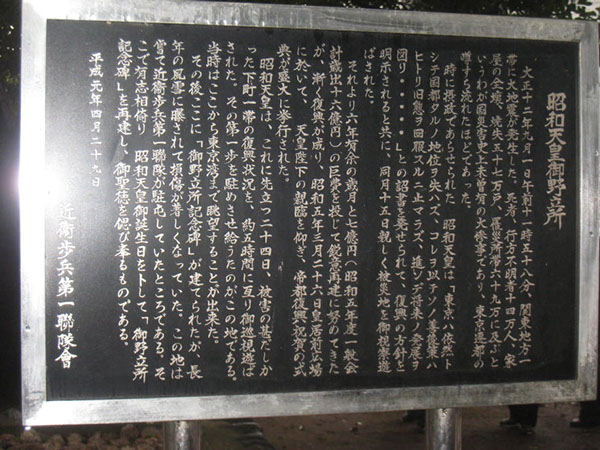 昭和天皇御野立所
大正十二年九月一日午前十一時五十八分、関東地方一
帯に大地震が発生した。死者、行方不明者十四万人、家
屋の全壊、焼失五十七万戸、罹災者六十九万に及ぶと
いうわが国災害史上未曽有の大惨事であり、東京遷都の
噂すら流れたほどであった。
時に摂政であらせられた 昭和天皇は「東京ハ依然ト
シテ国都タルノ地位ヲ失ハズ、コレヲ以テソノ善後策ハ
ヒトリ旧態ヲ回服スルニ止マラズ、進ンデ将来ノ発展ヲ
図リ・・・・」との詔書を発せられて、復興の方針を
明示されると共に、同月十五日親しく被災地を御視察遊
ばされた。
それより六年有余の歳月と七億円(昭和五年度一般会
計歳出十六億円)の巨費を投じて鋭意再建に努めてきた
が、漸く復興が成り、昭和五年三月二十六日皇居前広場
に於いて、 天皇陛下の親臨を仰ぎ、帝都復興祝賀の式
典が盛大に挙行された。
昭和天皇は、これに先立つ二十四日、被害の甚だしか
った下町一帯の復興状況を、約五時間に亙り御巡視遊ば
された。その第一歩を駐めさせ給うたのがこの地である。
当時はここから東京湾まで眺望することが出来た。
その後ここに「御野立所記念碑」が建てられたが、長
年の風雪に曝されて損傷が著しくなっていた。この地は
嘗て近衛歩兵第一聯隊が駐屯していたところである。そ
こで有志相倚り 昭和天皇御誕生日を卜して、「御野立所
記念碑」を再建し、御聖徳を偲び奉るものである。
平成元年四月二十九日
近衛歩兵第一聯隊會